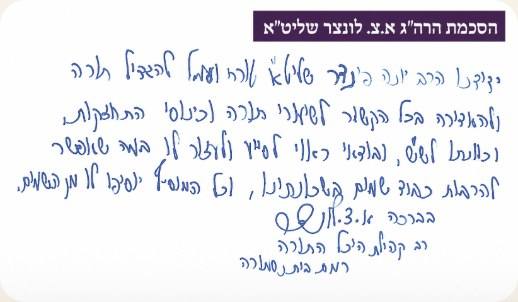 הסכמת הרה"ג א.צ. לונצר שליט"א
ידידנו הרב יונה פינדר שליט"א טורח ועמל להגדיל תורה
ולהאדירה בכל הקשור לשיעורי תורה וכינוסי התחזקות,
וכוונתו לש"ש, ובודאי ראוי לסייע ולעזור לו במה שאפשר
להרבות כבוד שמים בשכונתינו, וכל המוסיף יוסיפו לו מן השמים.
בברכה א.צ. לונצר
רב קהילת היכל התורה
רמת בית שמש